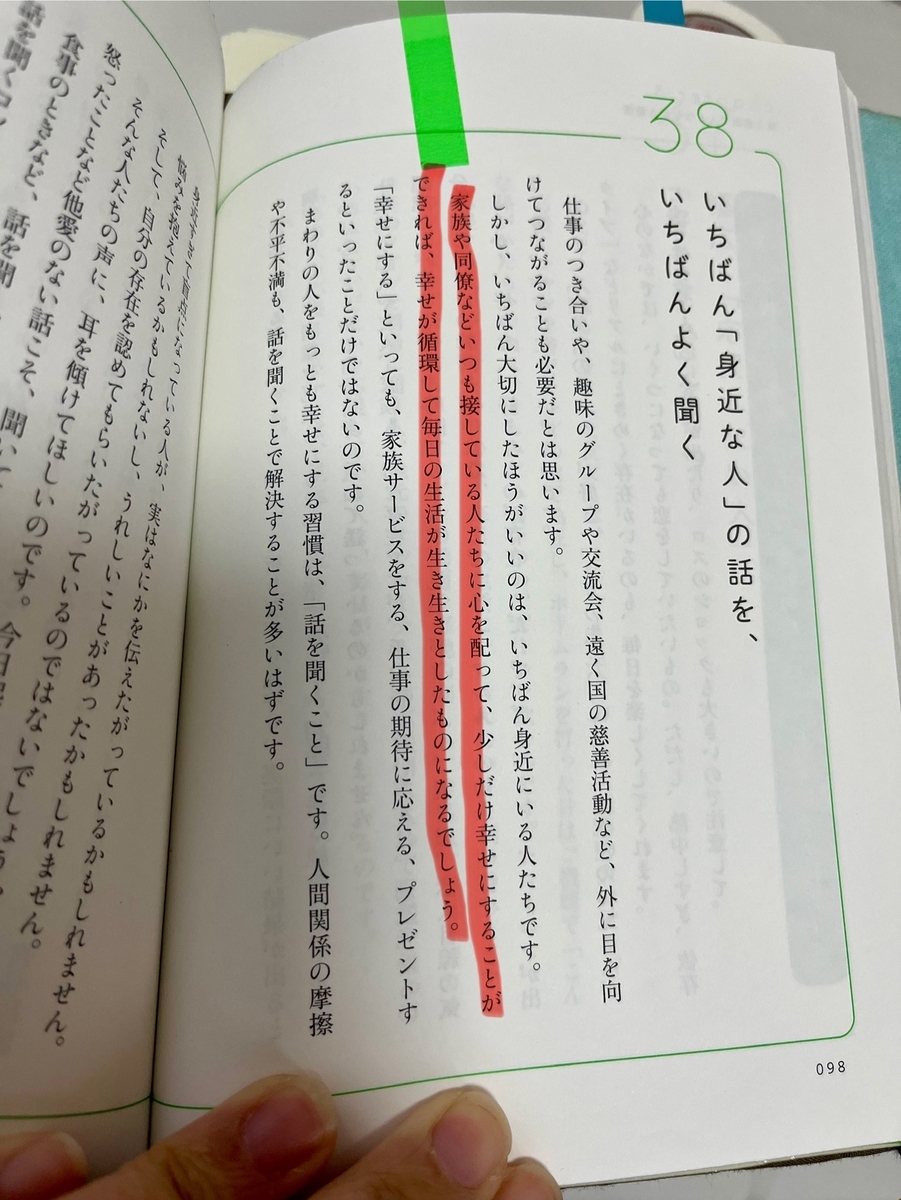 38
いちばん「身近な人」の話を、
いちばんよく聞く
仕事のつき合いや、趣味のグループや交流会、遠く国の慈善活動など、外に目を向
けてつながることも必要だとは思います。
しかし、いちばん大切にしたほうがいいのは、いちばん身近にいる人たちです。
家族や同僚などいつも接している人たちに心を配って、少しだけ幸せにすることが
できれば、幸せが循環して毎日の生活が生き生きとしたものになるでしょう。
「幸せにする」といっても、家族サービスをする、仕事の期待に応える、プレゼントす
るといったことだけではないのです。
まわりの人をもっとも幸せにする習慣は、「話を聞くこと」です。人間関係の摩擦
や不平不満も、話を聞くことで解決することが多いはずです。
098
悩みを抱えているかもしれないし、うれしいことがあったかもしれません。
そして、自分の存在を認めてもらいたがっているのではないでしょうか。
そんな人たちの声に、耳を傾けてほしいのです。
怒ったことなど他愛のない話こそ、聞いて
食事のときなど、話を聞
話を聞くコ